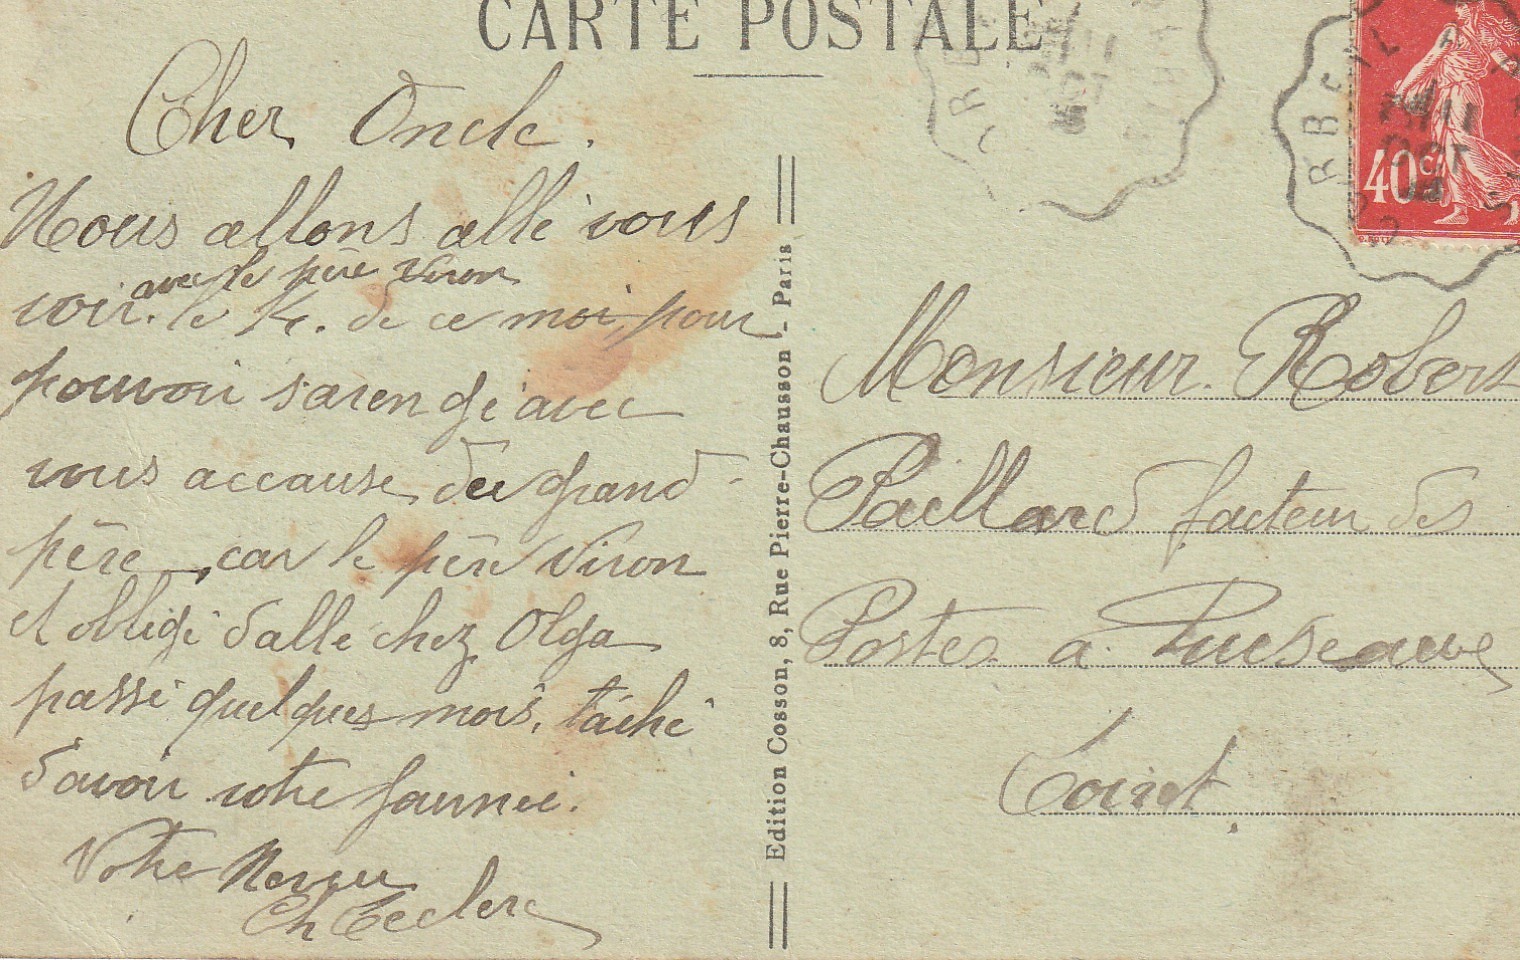 CARTE POSTALE
Cher Oncle.
Nous allons allé vous
avec le père Viron
voir. le 14. de ce moi pour
pouvoir s'arengé avec
vous accause du grand-
père, car le père Viron
et obligé d'allé chez Olga
passé quelques mois, taché
d'avoir votre journée.
Votre Neveu
Ch Leclerc
Edition Cosson, 8, Rue Pierre-Chausson - Paris
40c
OCT
Monsieur Robert
Paillard facteur des
Postes a Puiseaux
Loiret